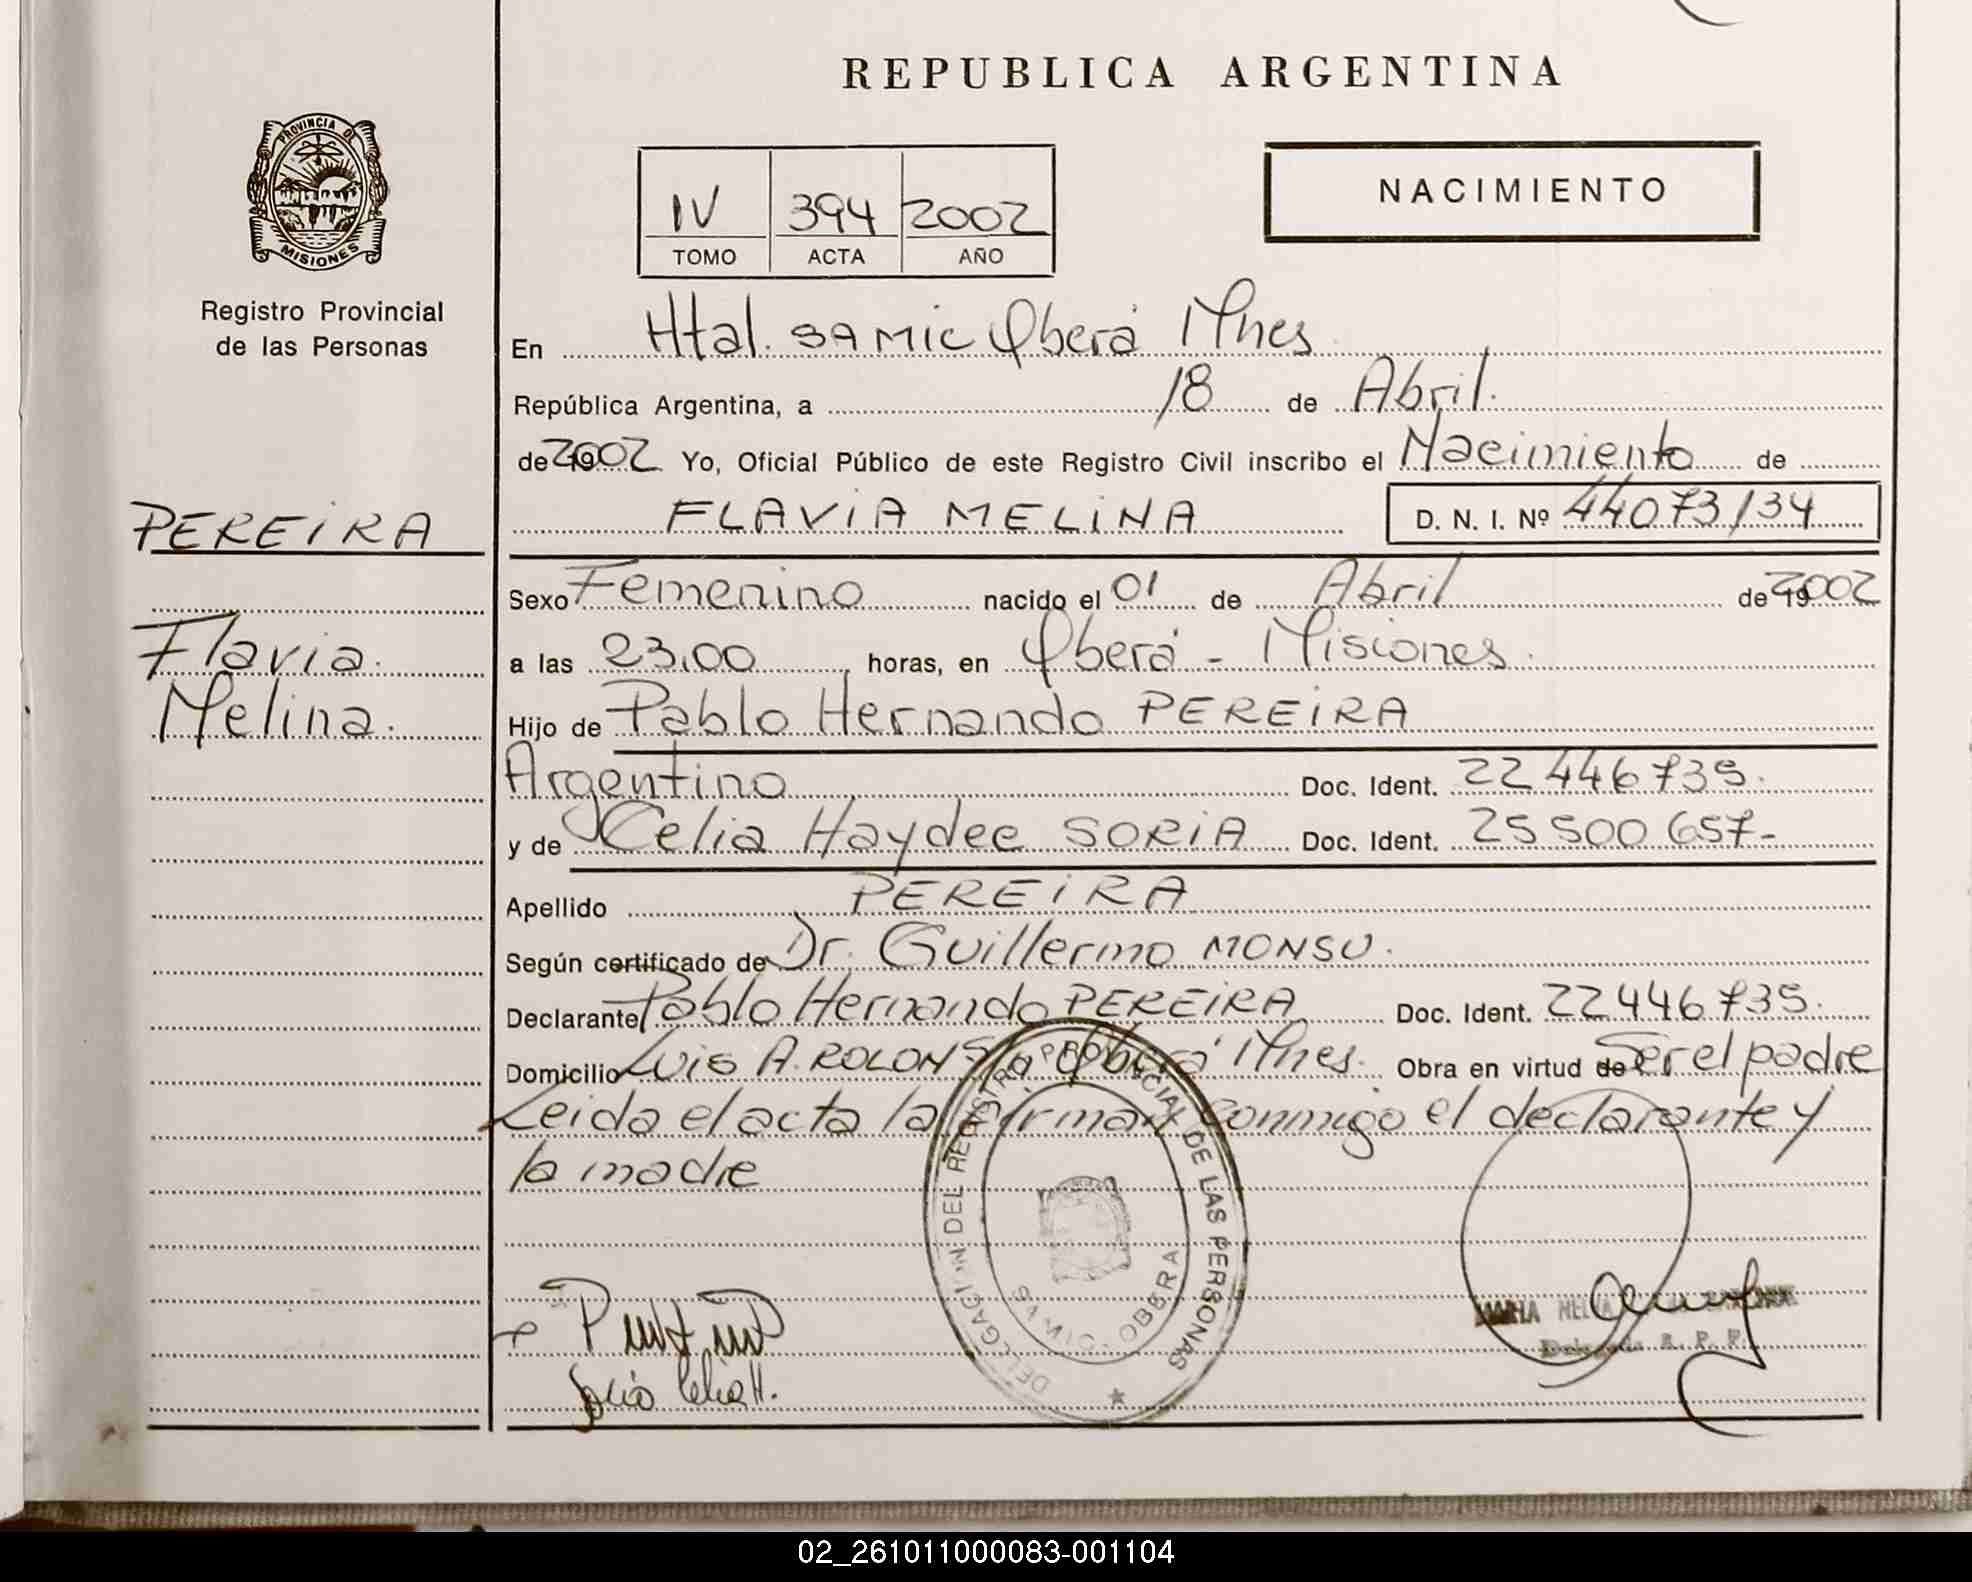 REPUBLICA ARGENTINA
PROVINCIA DE
MISIONES
Registro Provincial
de las Personas
IV 394 2002
TOMO ACTA AÑO
NACIMIENTO
En Htal. SAMIC Oberá Mnes
República Argentina, a 18 de Abril.
de 2002 Yo, Oficial Público de este Registro Civil inscribo el Nacimiento de
FLAVIA MELINA D. N. I. Nº 44073134
PEREIRA
Flavia.
Melina.
Sexo Femenino nacido el 01 de Abril de 2002
a las 23,00 horas, en Oberá - Misiones.
Hijo de Pablo Hernando PEREIRA
Argentino Doc. Ident. 22 446 735.
y de Celia Haydee SORIA Doc. Ident. 25 500 657-
Apellido PEREIRA
Según certificado de Dr. Guillermo MONSU.
Declarante Pablo Hernando PEREIRA Doc. Ident. 22 446 735.
Domicilio Luis A. ROLON Oberá Mnes. Obra en virtud de Ser el padre
Leida el acta la firman conmigo el declarante y
la madre
DELEGACION DEL REGISTRO PROVINCIAL DE LAS PERSONAS
SAMIC - OBERA
MARIA
Delegada R. P. P.
Soria Celia H.
02_261011000083-001104